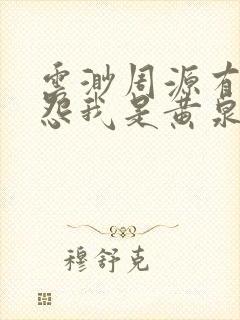 云渺周源有
怨我是黄泉
穆舒克